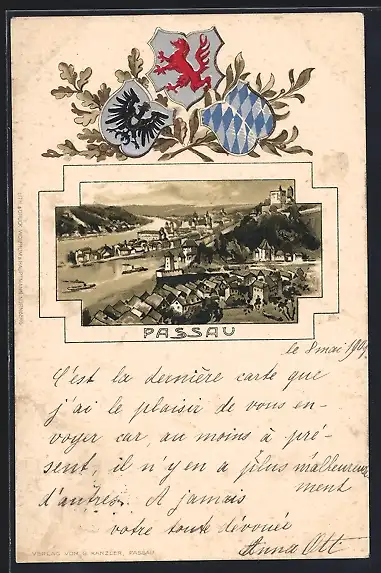 PASSAU
le 8 mai 1901.
C'est la dernière carte que
j'ai le plaisir de vous en-
voyer car, au moins à pré-
sent, il n'y en a plus malheureuse
d'autres. A jamais ment
votre toute dévouée
Anna Ott
VERLAG VON G. KANZLER, PASSAU